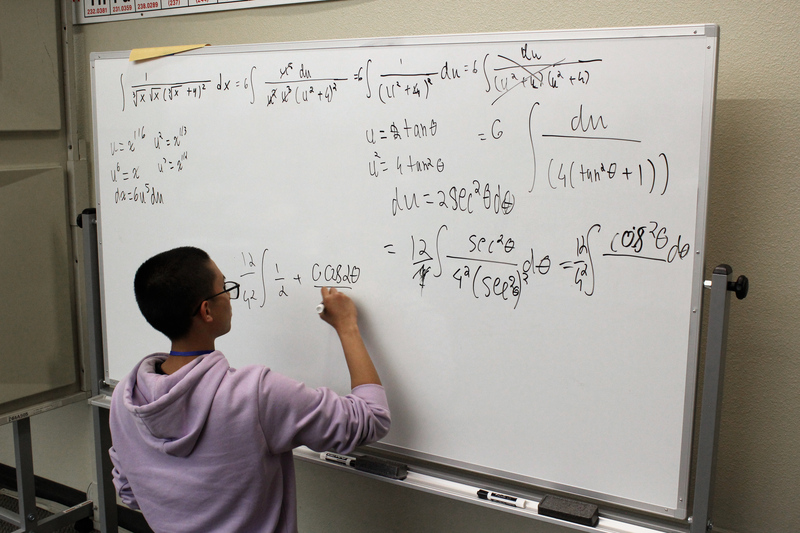 232.0381 231.0359 238.0289 (237)
∫ 1/(∛x √x (∛x + 4)²) dx = 6∫ u⁵ du/(u² u³ (u² + 4)²) = 6∫ 1/(u² + 4)² du = 6∫ du/((u² + 4)(u² + 4))
u = x^1/6 u² = x^1/3
u⁶ = x
dx = 6u⁵ du
u = 2 tanθ = 6 ∫ du/(4(tan²θ + 1))
u² = 4 tan²θ
du = 2 sec²θ dθ
= 12/4² ∫ sec²θ/(4²(sec²θ)²) dθ = 12/4² ∫ cos²θ dθ
12/4² ∫ 1/2 + cos2θ